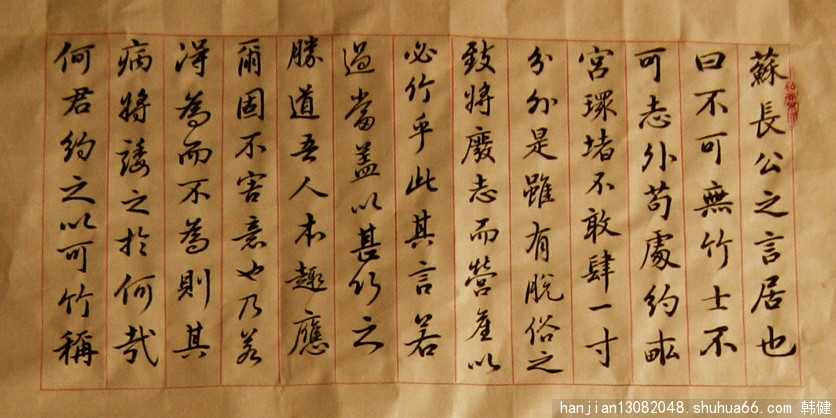 蘇長公之言居也
曰不可無竹士不
可志外苟處約畝
宮環堵不敢肆一寸
分外是雖有脫俗之
致將廢志而營產以
必竹乎此其言若
過當蓋以甚竹之
勝道吾人本趣應
爾固不害意也乃若
得為而不為則其
病將諉之於何哉
何君約之以可竹稱
hanjian13082048.shuhua66.com 韩健